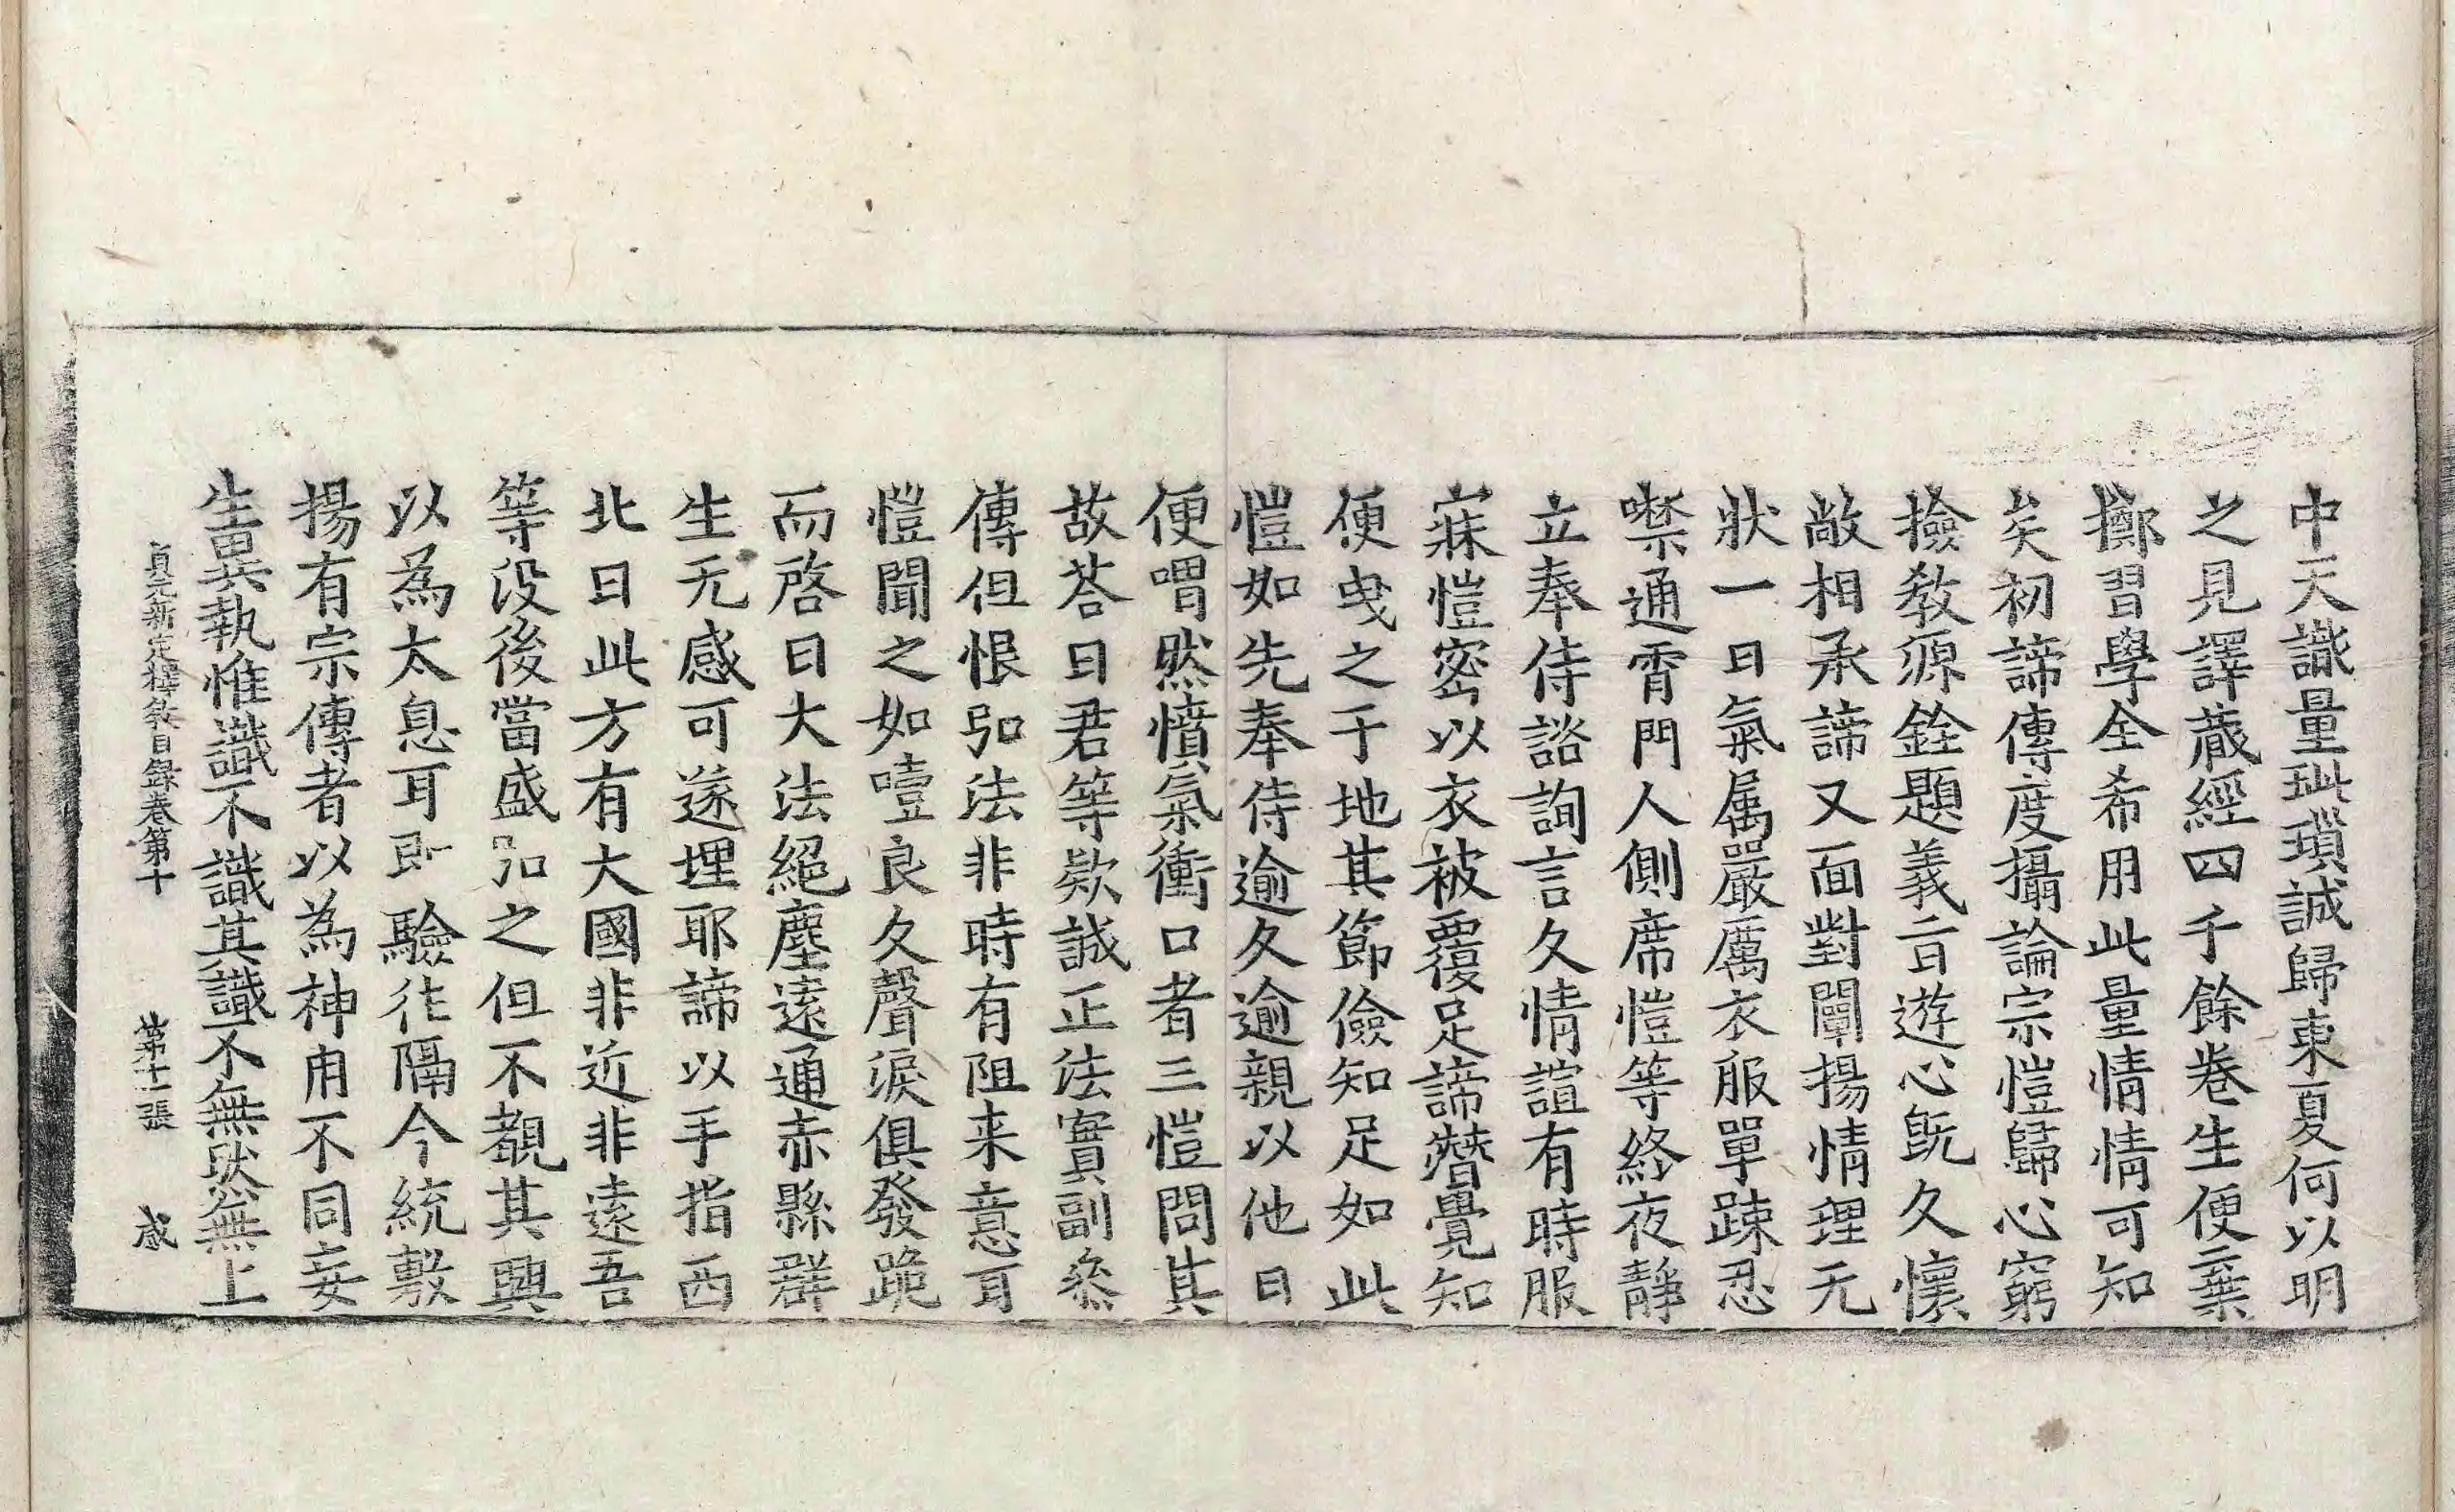 中天識量玼瑣誠歸東夏何以明
之見譯蕆經四千餘卷生便棄
擲習學全希用此量情情可知
矣初諦傳度攝論宗愷歸心窮
撿教源銓題義旨遊心旣久懷
敞相承諦又面對闡揚情理无
狀一日氣属嚴厲衣服單踈忍
噤通霄門人側席愷等終夜靜
立奉侍諮詢言久情諠有時服
寐愷密以衣被覆足諦朁覺知
便曳之于地其節儉知足如此
愷如先奉侍逾久逾親以他日
便喟然憤氣衝口者三愷問其
故荅曰君等欵誠正法實副叅
傳但恨弘法非時有阻来意耳
愷聞之如噎良久聲淚俱發跪
而啓曰大法絕塵遠通赤縣群
生无感可遂埋耶諦以手指西
北曰此方有大國非近非遠吾
等没後當盛弘之但不覩其興
以為太息耳即驗徃隔今統敷
揚有宗傳者以為神用不同妄
生異執惟識不識其識不無慨然無上
貞元新定釋教目録卷第十 第十一張 感